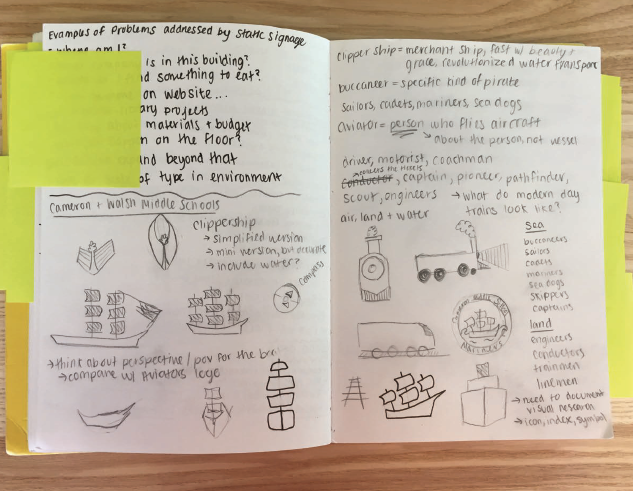 Examples of Problems addressed by static signage
- where am I?
is in this building?
nd something to eat?
on website...
ary projects
materials + budget
n on the floor?
and beyond that
of type in environment
Cameron + Walsh Middle Schools
Clippership
→ simplified version
→ mini version, but accurate
→ include water?
Compass
→ think about perspective / pov for the
→ compare w/ Aviators logo
clipper ship = merchant ship, fast w/ beauty +
grace, revolutionized water transport
buccaneer = specific kind of pirate
sailors, cadets, mariners, sea dogs
aviator = person who flies aircraft
→ about the person, not vessel
driver, motorist, coachman
conductor, captain, pioneer, pathfinder,
scout, engineers → what do modern day
trains look like?
air, land + water
Sea
buccaneers
sailors
cadets
mariners
sea dogs
skippers
captains
land
engineers
conductors
trainmen
linemen
→ need to document
visual research
→ icon, index, symbol
Cameron Middle School
Mariners